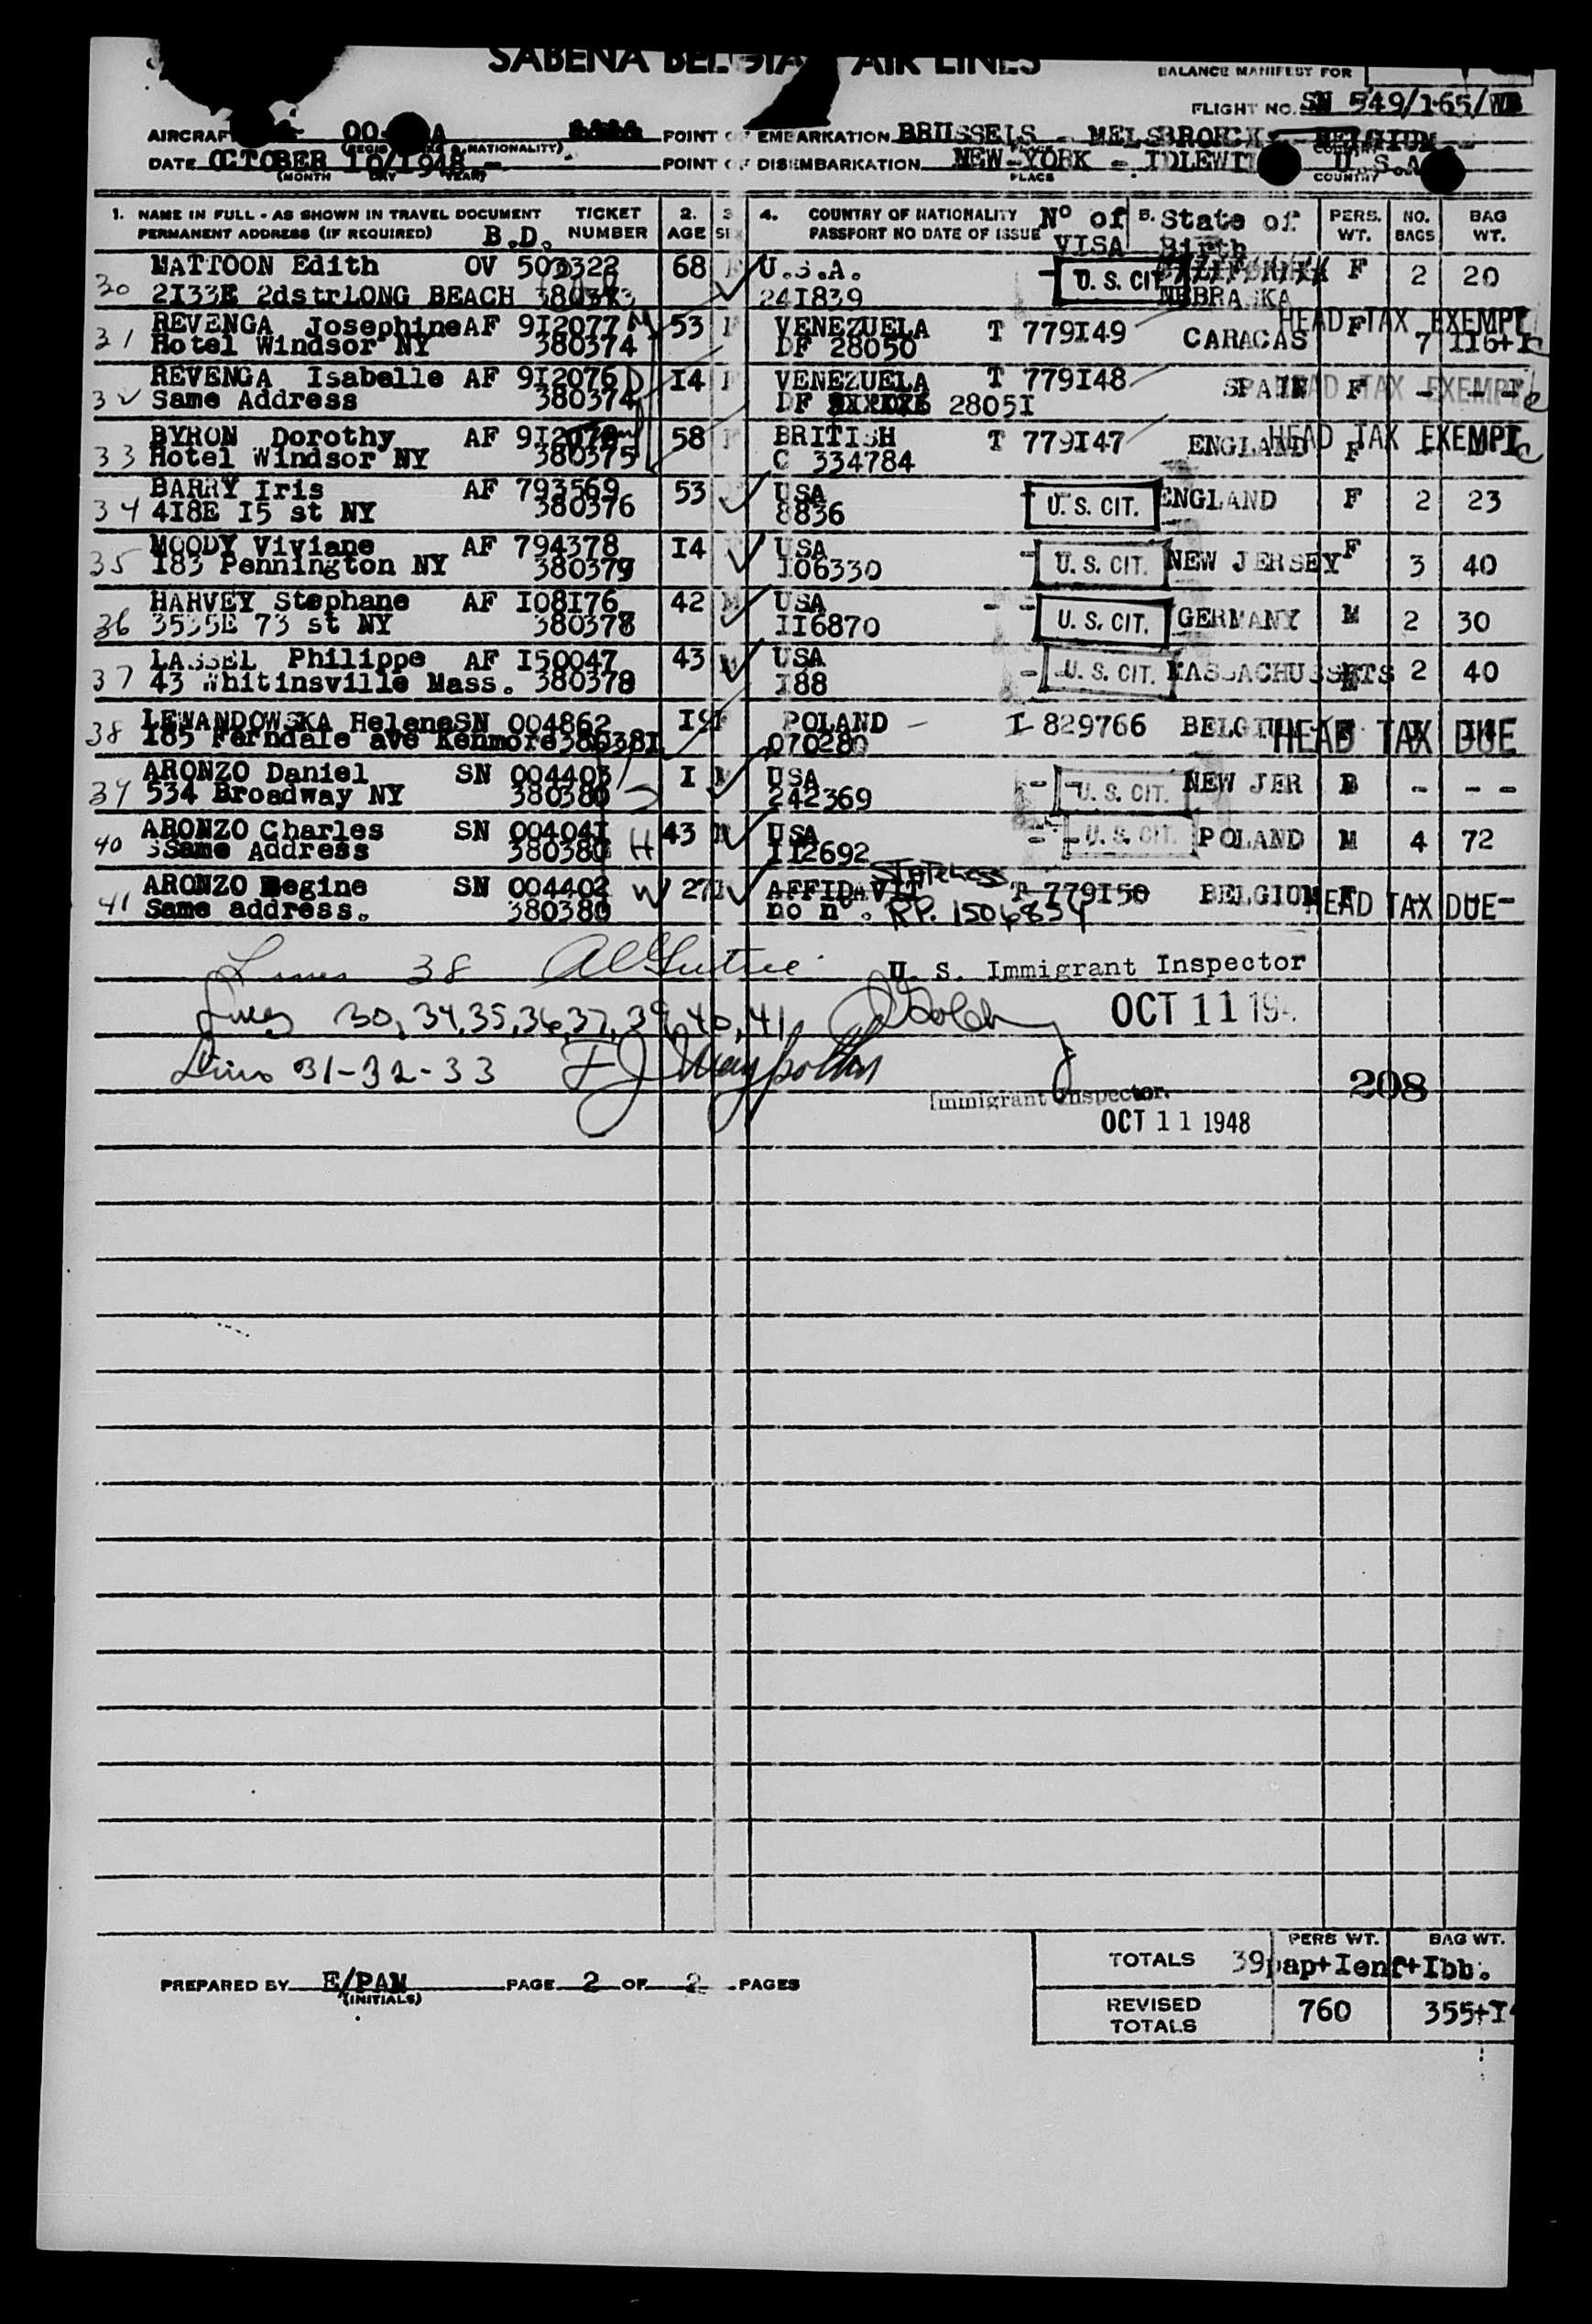 SABENA BELGIAN AIR LINES
BALANCE MANIFEST FOR
FLIGHT NO. SN 549/165/WB
AIRCRAFT OO- A POINT OF EMBARKATION BRUSSELS - MELSBROECK - BELGIUM
(REGIS & NATIONALITY)
DATE OCTOBER 10/1948 - POINT OF DISEMBARKATION NEW-YORK - IDLEWI U.S.A
(MONTH DAY YEAR) PLACE COUNTRY
1. NAME IN FULL - AS SHOWN IN TRAVEL DOCUMENT TICKET 2. 3 4. COUNTRY OF NATIONALITY Nº of B. State of PERS. NO. BAG
PERMANENT ADDRESS (IF REQUIRED) B.D. NUMBER AGE SEX PASSPORT NO DATE OF ISSUE VISA Birth WT. BAGS WT.
MATTOON Edith OV 503322 68 F U.S.A. U. S. CIT F 2 20
30 2I33E 2dstrLONG BEACH 380373 24I839 NEBRASKA
REVENGA Josephine AF 9I2077 53 F VENEZUELA T 779I49 CARACAS HEAD TAX EXEMPT
31 Hotel Windsor NY 380374 DF 28050 F 7 II6+I
REVENGA Isabelle AF 9I2076 I4 F VENEZUELA T 779I48 SPAIN HEAD TAX EXEMPT
32 Same Address 380374 DF 2805I F - - -
BYRON Dorothy AF 9I2078 58 F BRITISH T 779I47 ENGLAND HEAD TAX EXEMPT
33 Hotel Windsor NY 380375 C 334784 F
BARRY Iris AF 793569 53 USA U. S. CIT. ENGLAND F 2 23
34 4I8E I5 st NY 380376 8836
MOODY Viviane AF 794378 I4 USA U. S. CIT. NEW JERSEY F 3 40
35 I83 Pennington NY 380379 I06330
HARVEY Stephane AF I08I76 42 M USA - - U. S. CIT. GERMANY M 2 30
36 3535E 73 st NY 380378 II6870
LASSEL Philippe AF I50047 43 M USA - U. S. CIT. MASSACHUSSETS 2 40
37 43 Whitinsville Mass. 380378 I88
LEWANDOWSKA Helene SN 004862 I9 F POLAND - I 829766 BELGIUM HEAD TAX DUE
38 I85 Ferndale ave Kenmore 38038I 070280
ARONZO Daniel SN 004403 I M USA - - U. S. CIT. NEW JER B - - -
39 534 Broadway NY 380380 242369
ARONZO Charles SN 00404I H 43 M USA - - U. S. CIT. POLAND M 4 72
40 Same Address 380380 II2692
ARONZO Regine SN 004402 W 27 AFFIDAVIT STATELESS T 779I50 BELGIUM F HEAD TAX DUE-
41 Same address. 380380 no nº. R.P. 1506834
Lines 38 U. S. Immigrant Inspector
Lines 30, 34, 35, 36, 37, 39, 40, 41 OCT 11 194
Lines 31-32-33 208
Immigrant Inspector.
OCT 11 1948
TOTALS PERS WT. BAG WT.
39pap+Ienf+Ibb.
PREPARED BY E/PAN PAGE 2 OF 2 PAGES
(INITIALS)
REVISED TOTALS 760 355+I